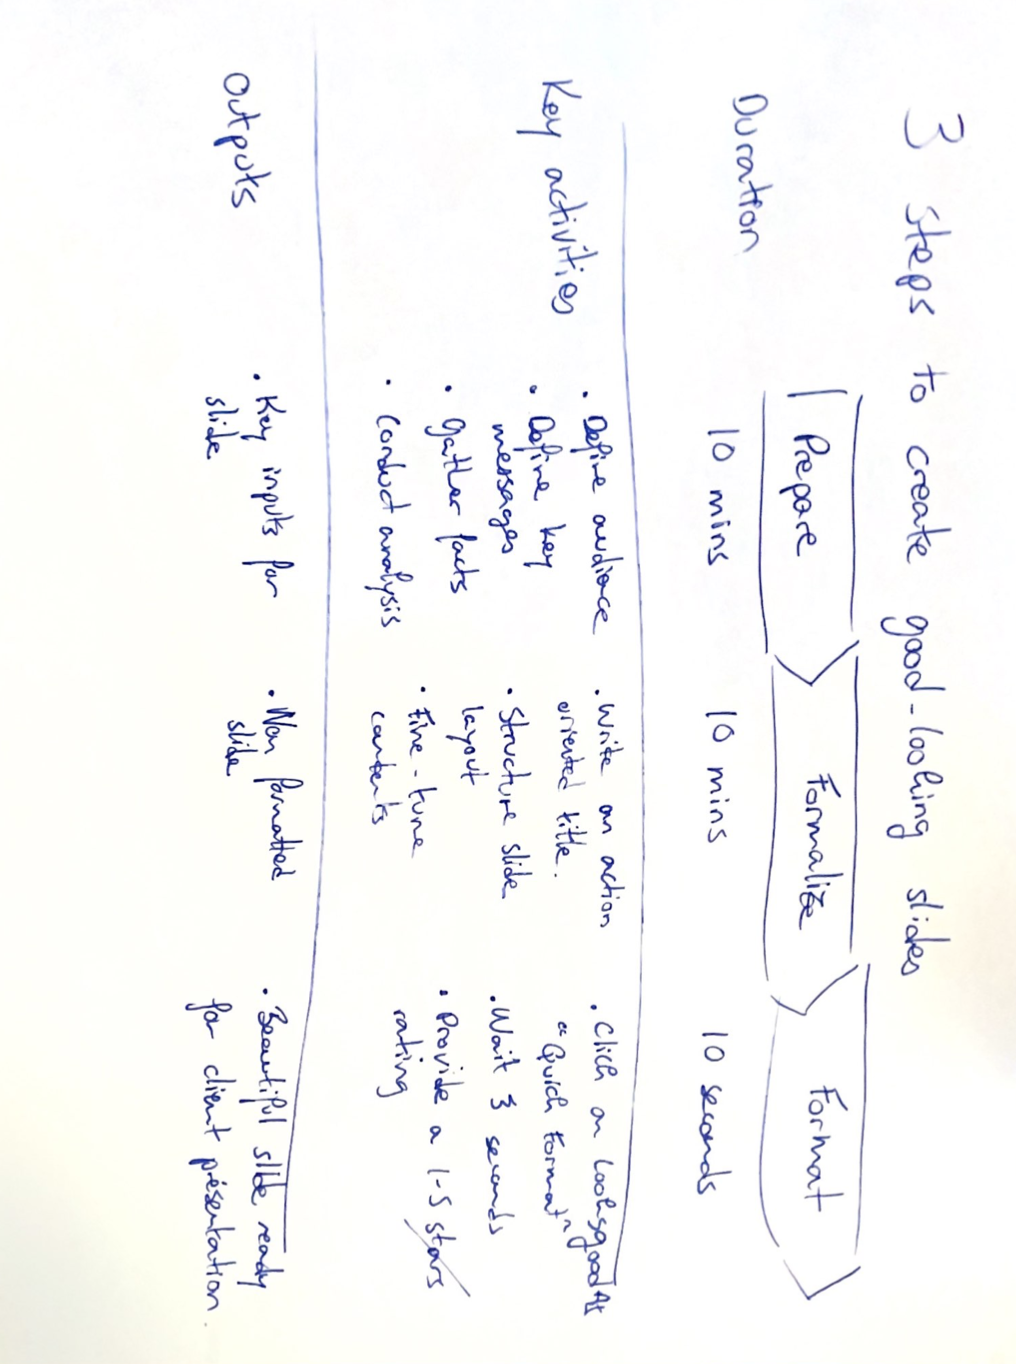 3 steps to create good-looking slides
Prepare
Formalize
Format
Duration
10 mins
10 mins
10 seconds
Key activities
• Define audience
• Define key
messages
• gather facts
• Conduct analysis
• Write an action
oriented title.
• Structure slide
layout
• Fine-tune
contents
• Click on LooksgoodAI
"Quick Format"
• Wait 3 seconds
• Provide a 1-5 stars
rating
Outputs
• Key inputs for
slide
• Non formatted
slide
• Beautiful slide ready
for client présentation.